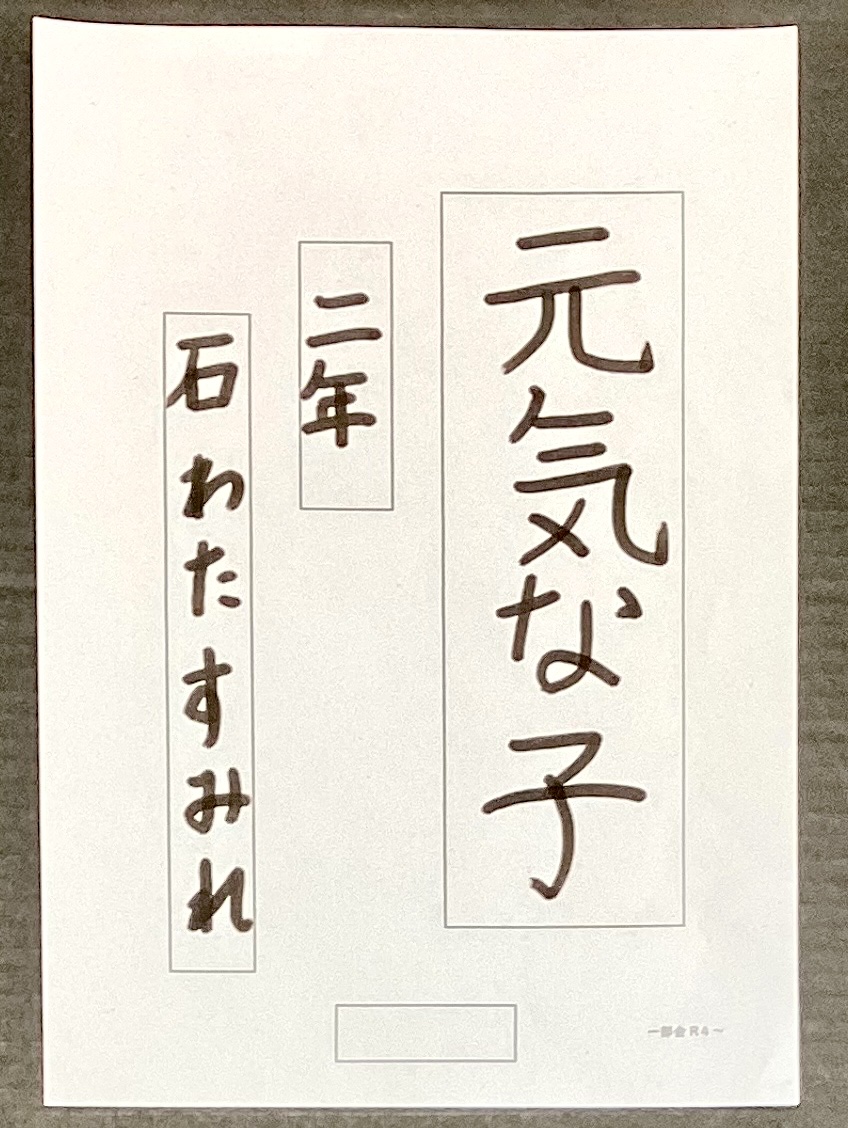 元気な子
二年
石わたすみれ
一部会R4～